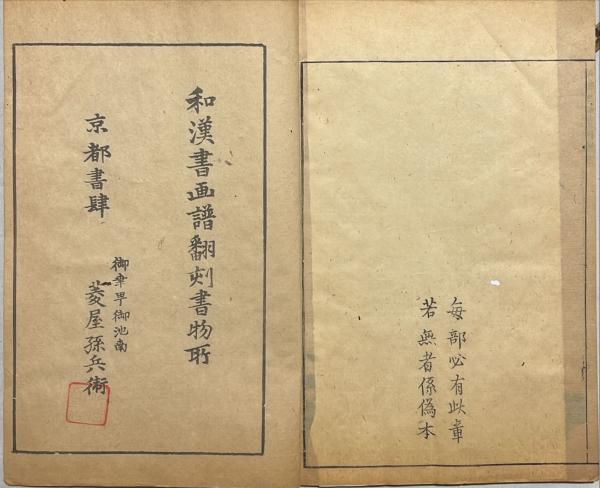 每部必有此章
若無者係偽本
和漢書画譜翻刻書物所
京都書肆
御幸甼御池南
菱屋孫兵衛